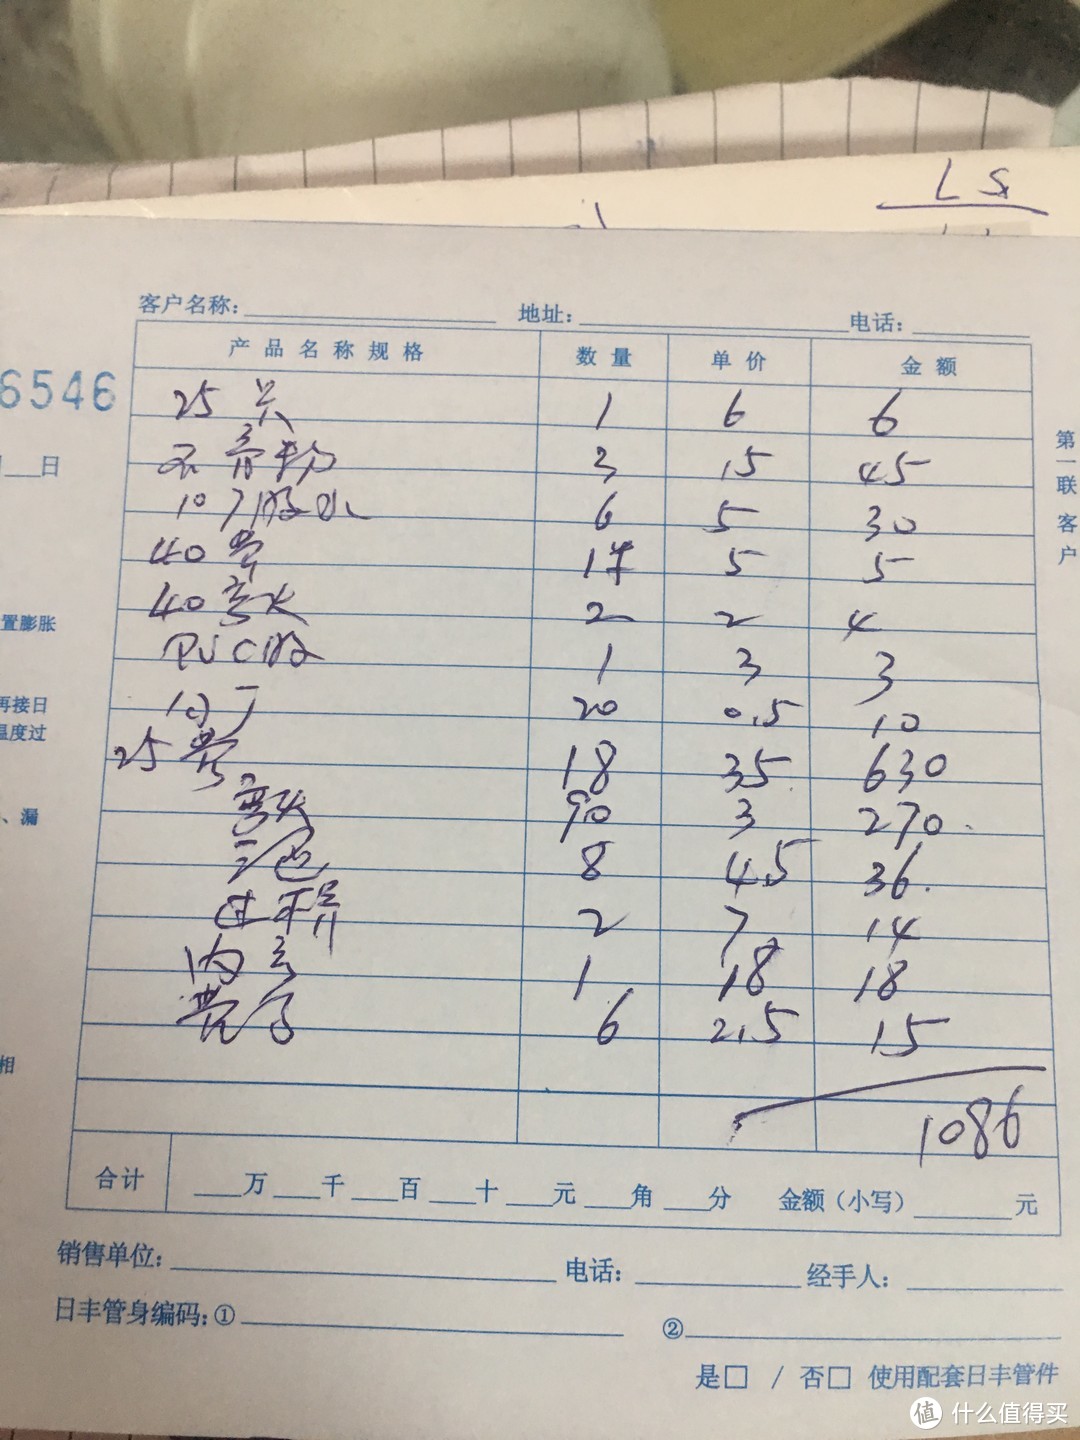 L S
客户名称: 地址: 电话:
产品名称规格 数量 单价 金额
6546
25 1 6 6
日
石膏粉 3 15 45
第一联 客户
107胶水 6 5 30
40管 1 5 5
40弯头 2 2 4
置膨胀
PVC胶 1 3 3
再接日
20 0.5 10
温度过
25管 18 35 630
弯头 90 3 270.
、漏
三通 8 4.5 36.
过 2 7 14
内 1 18 18
管 6 2.5 15
相
1086
合计 万 千 百 十 元 角 分 金额(小写) 元
销售单位: 电话: 经手人:
日丰管身编码:① ②
是□ / 否□ 使用配套日丰管件
值 什么值得买